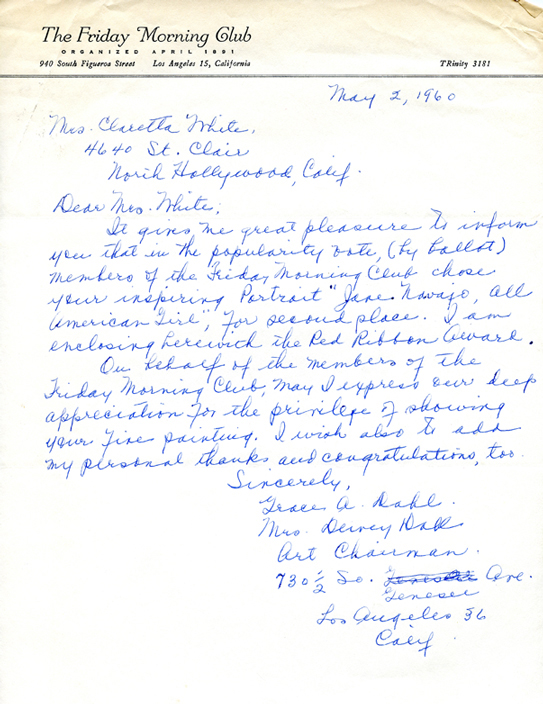 The Friday Morning Club
ORGANIZED APRIL 1891
940 South Figueroa Street Los Angeles 15, California TRinity 3181
May 2, 1960
Mrs. Claretta White,
4640 St. Clair
North Hollywood, Calif.
Dear Mrs. White;
It gives me great pleasure to inform
you that in the popularity vote, (by ballot)
members of the Friday Morning Club chose
your inspiring Portrait "Jane Navajo, All
American Girl", for second place. I am
enclosing herewith the Red Ribbon Award.
On behalf of the members of the
Friday Morning Club, May I express our deep
appreciation for the privilege of showing
your fine painting. I wish also to add
my personal thanks and congratulations, too.
Sincerely,
Grace A. Dahl.
Mrs. Dewey Dahl
Art Chairman.
730 1/2 So. Ave.
Genesee
Los Angeles 36
Calif.